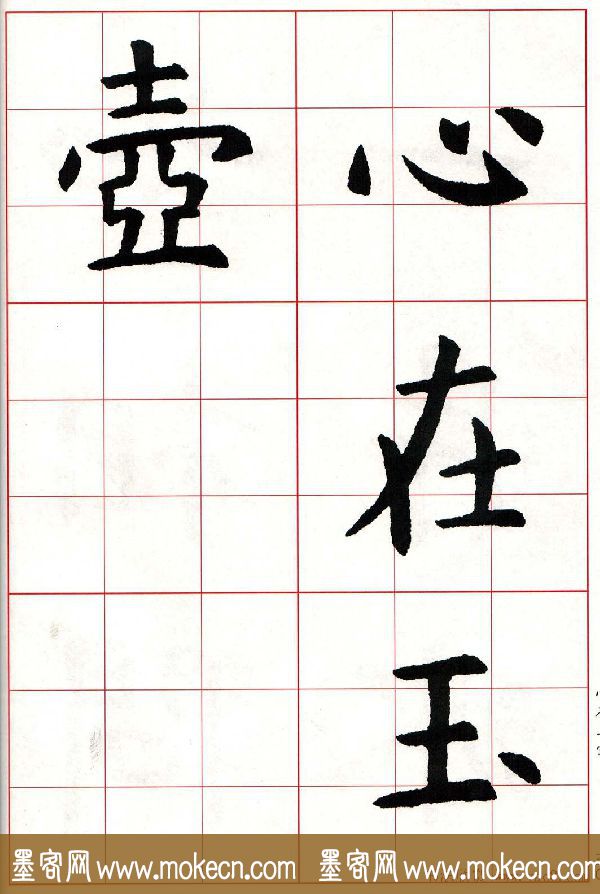 心在玉
壺
墨客网 www.mokecn.com 墨客网 www.mokecn.com